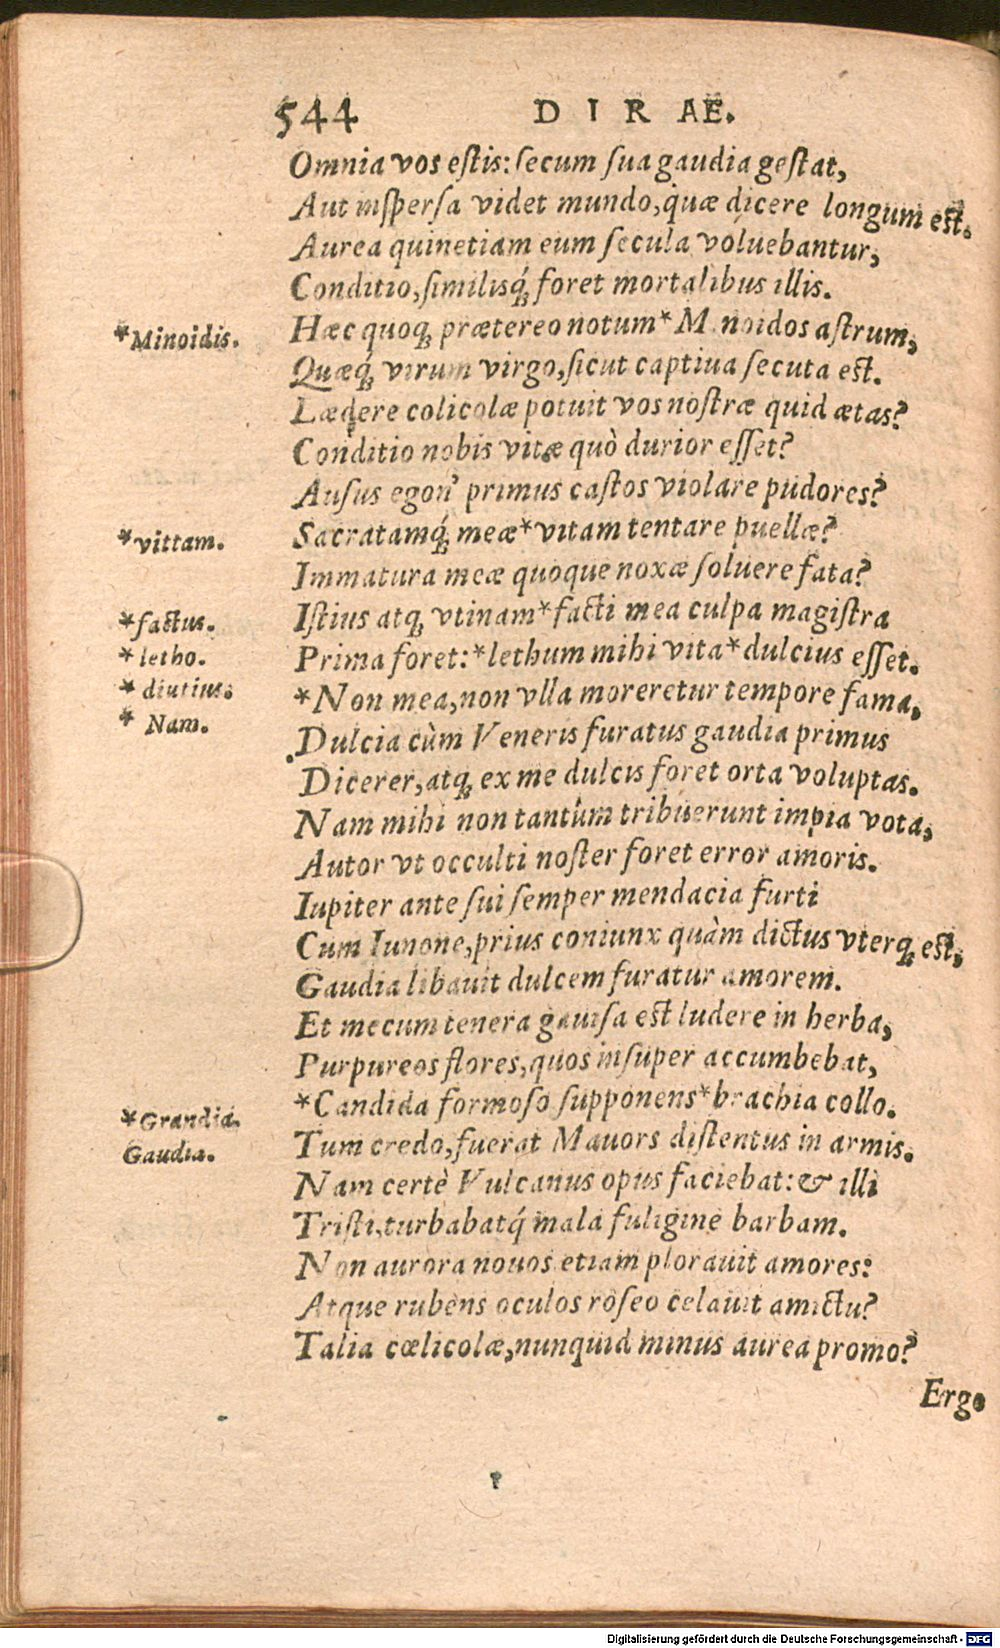 544 DIRAE.
Omnia vos eſtis: ſecum ſua gaudia geſtat,
Aut inſperſa videt mundo, quæ dicere longum eſt.
Aurea quinetiam eum ſecula voluebantur,
Conditio, ſimilisq́; foret mortalibus illis.
*Minoidis.
Hæc quoq; prætereo notum * M noidos aſtrum,
Quæq́; virum virgo, ſicut captiua ſecuta eſt.
Lædere colicolæ potuit vos noſtræ quid ætas?
Conditio nobis vitæ quò durior eſſet?
Auſus egon' primus caſtos violare pudores?
*vittam.
Sacratamq́; meæ * vitam tentare puellæ?
Immatura meæ quoque noxæ ſoluere fata?
*factus.
Iſtius atq; vtinam * facti mea culpa magiſtra
*letho.
Prima foret: * lethum mihi vita * dulcius eſſet.
* diutius.
*Non mea, non vlla moreretur tempore fama,
* Nam.
Dulcia cùm Veneris furatus gaudia primus
Dicerer, atq; ex me dulcis foret orta voluptas.
Nam mihi non tantûm tribuerunt impia vota,
Autor vt occulti noſter foret error amoris.
Iupiter ante ſui ſemper mendacia furti
Cum Iunone, prius coniunx quàm dictus vterq; eſt,
Gaudia libauit dulcem furatur amorem.
Et mecum tenera gauiſa eſt ludere in herba,
Purpureos flores, quos inſuper accumbebat,
*Candida formoſo ſupponens * brachia collo.
*Grandia.
Gaudia.
Tum credo, fuerat Mauors diſtentus in armis.
Nam certè Vulcanus opus faciebat: & illi
Triſti, turbabatq́ mala fuligine barbam.
Non aurora nouos etiam plorauit amores:
Atque rubens oculos roſeo celauit amictu?
Talia cœlicolæ, nunquid minus aurea promo?
Ergo
Digitalisierung gefördert durch die Deutsche Forschungsgemeinschaft - DFG